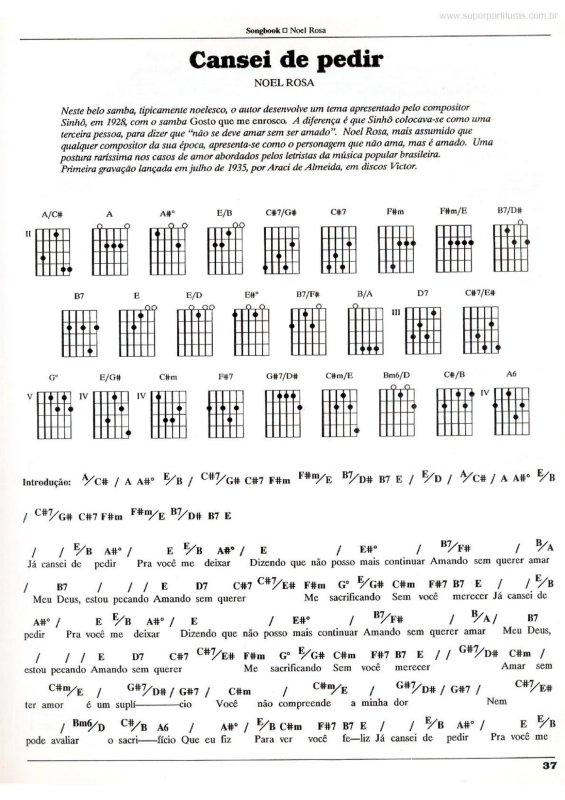 www.superpartituras.com.br
Songbook □ Noel Rosa
Cansei de pedir
NOEL ROSA
Neste belo samba, tipicamente noelesco, o autor desenvolve um tema apresentado pelo compositor
Sinhô, em 1928, com o samba Gosto que me enrosco. A diferença é que Sinhô colocava-se como uma
terceira pessoa, para dizer que "não se deve amar sem ser amado". Noel Rosa, mais assumido que
qualquer compositor da sua época, apresenta-se como o personagem que não ama, mas é amado. Uma
postura raríssima nos casos de amor abordados pelos letristas da música popular brasileira.
Primeira gravação lançada em julho de 1935, por Araci de Almeida, em discos Victor.
A/C# A A#° E/B C#7/G# C#7 F#m F#m/E B7/D#
II
B7 E E/D E#° B7/F# B/A D7 C#7/E#
III
G° E/G# C#m F#7 G#7/D# C#m/E Bm6/D C#/B A6
V IV IV IV
Introdução: A/C# / A A#° E/B / C#7/G# C#7 F#m F#m/E B7/D# B7 E / E/D / A/C# / A A#° E/B
/ C#7/G# C#7 F#m F#m/E B7/D# B7 E
/ / E/B A#° / E E/B A#° / E / E#° / B7/F# / B/A
Já cansei de pedir Pra você me deixar Dizendo que não posso mais continuar Amando sem querer amar
/ B7 / / / E D7 C#7 C#7/E# F#m G° E/G# C#m F#7 B7 E / / E/B
Meu Deus, estou pecando Amando sem querer Me sacrificando Sem você merecer Já cansei de
A#° / E E/B A#° / E / E#° / B7/F# / B/A / B7
pedir Pra você me deixar Dizendo que não posso mais continuar Amando sem querer amar Meu Deus,
/ / / E D7 C#7 C#7/E# F#m G° E/G# C#m F#7 B7 E / / G#7/D# C#m /
estou pecando Amando sem querer Me sacrificando Sem você merecer Amar sem
C#m/E / G#7/D# / G#7 / C#m / C#m/E / G#7/D# / G#7 / C#7/E#
ter amor é um suplí——cio Você não compreende a minha dor Nem
/ Bm6/D C#/B A6 / A#° / E/B C#m F#7 B7 E / / E/B A#° / E E/B
pode avaliar o sacri—fício Que eu fiz Para ver você fe–liz Já cansei de pedir Pra você me
37